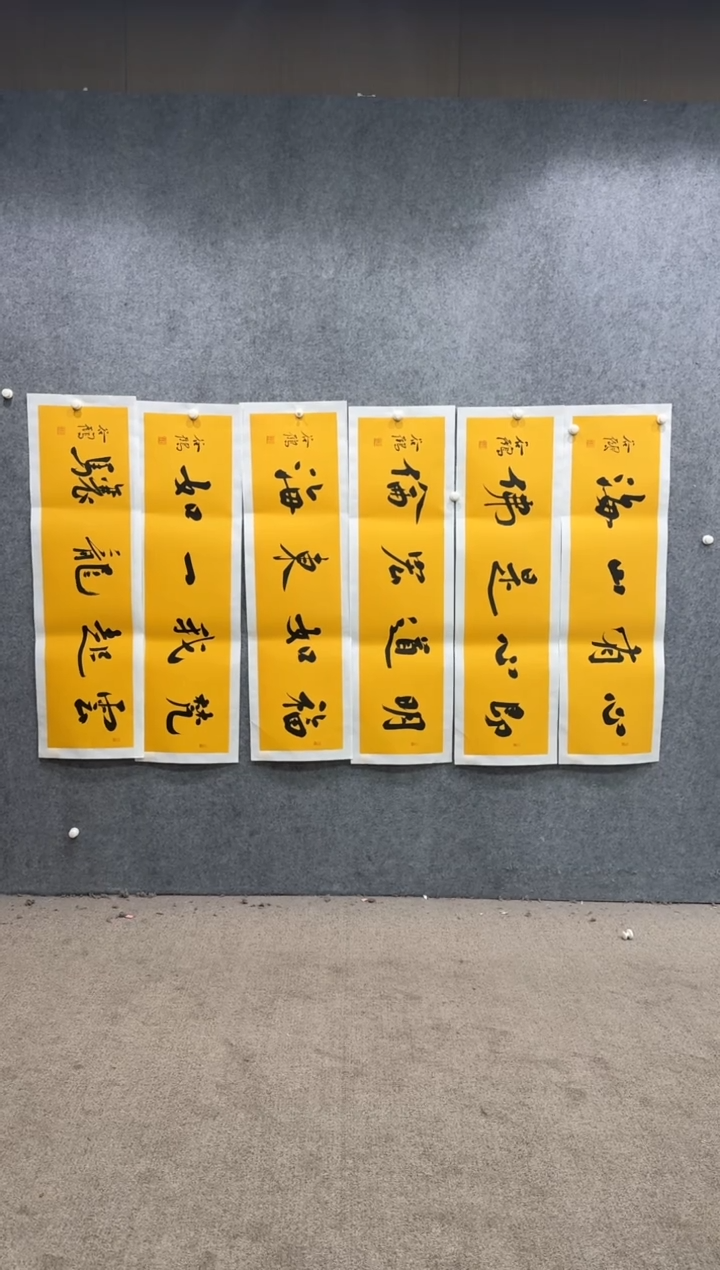 心有山海
即心是佛
明道宏倫
福如東海
梵我一如
雲起龍驤